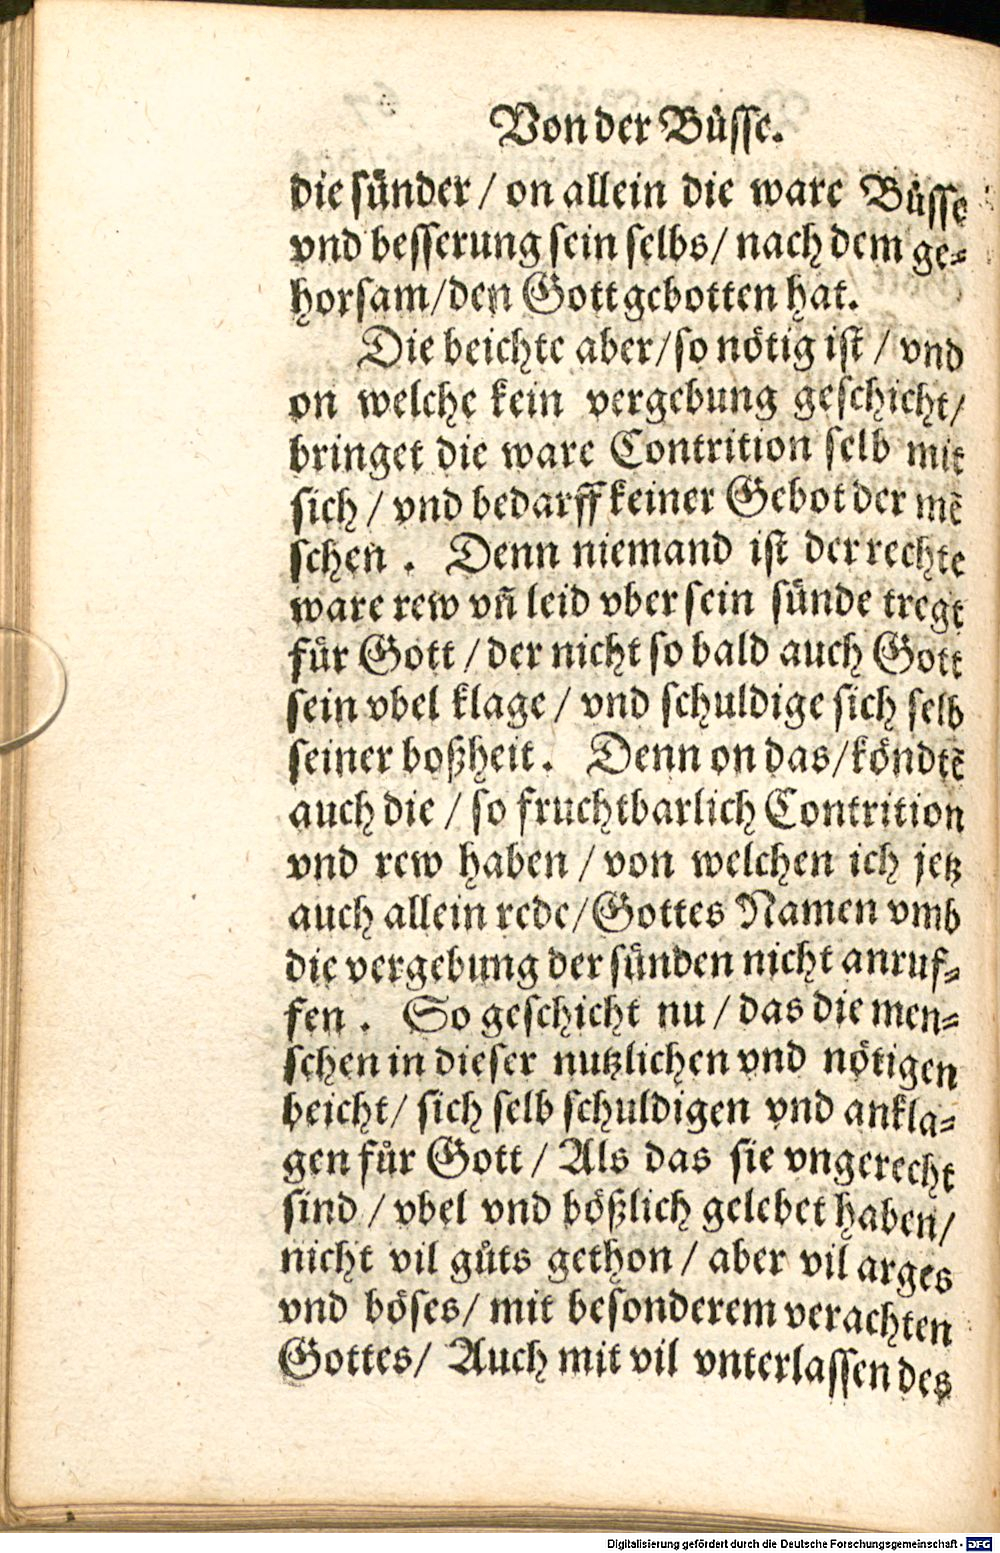 Von der Bůsse.
die sünder / on allein die ware Bůsse
vnd besserung sein selbs / nach dem ge⸗
horsam / den Gott gebotten hat.
Die beichte aber / so nötig ist / vnd
on welche kein vergebung geschicht /
bringet die ware Contrition selb mit
sich / vnd bedarff keiner Gebot der mẽ
schen . Denn niemand ist der rechte
ware rew vñ leid vber sein sünde tregt
für Gott / der nicht so bald auch Gott
sein vbel klage / vnd schuldige sich selb
seiner boßheit . Denn on das / köndtẽ
auch die / so fruchtbarlich Contrition
vnd rew haben / von welchen ich jetz
auch allein rede / Gottes Namen vmb
die vergebung der sünden nicht anruf⸗
fen . So geschicht nu / das die men⸗
schen in dieser nutzlichen vnd nötigen
beicht / sich selb schuldigen vnd ankla⸗
gen für Gott / Als das sie vngerecht
sind / vbel vnd bößlich gelebet haben /
nicht vil gůts gethon / aber vil arges
vnd böses / mit besonderem verachten
Gottes / Auch mit vil vnterlassen des
Digitalisierung gefördert durch die Deutsche Forschungsgemeinschaft - DFG